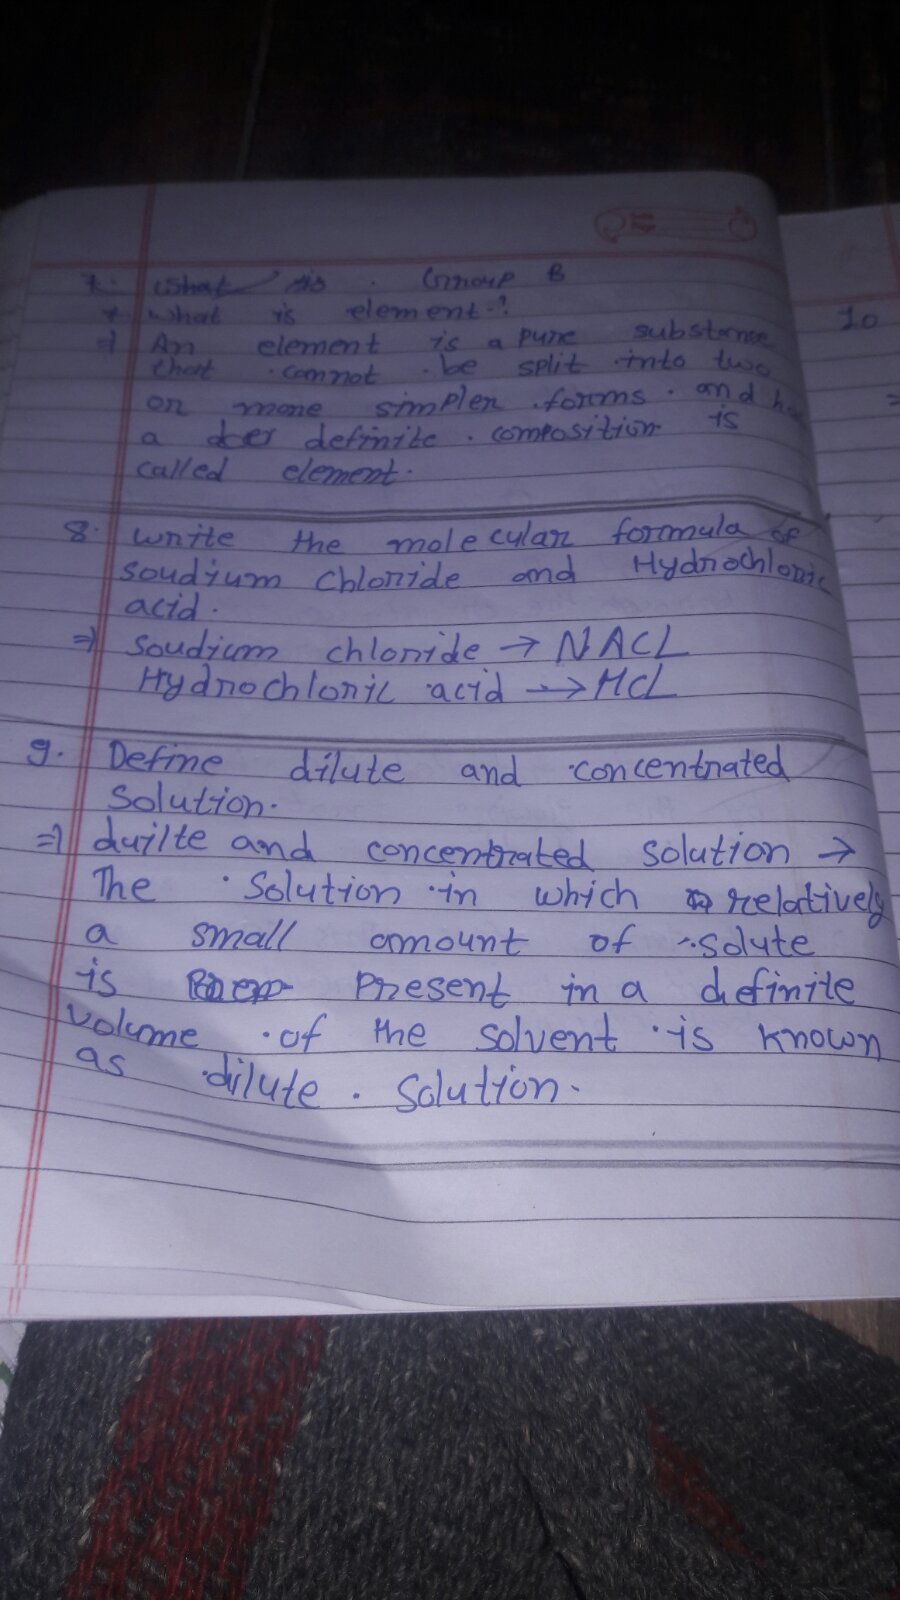 7. What is . Group B
7 what is element.?
⇒ An element is a pure substance
that cannot be split into two
or more simpler forms. and
a definite composition is
called element.
8. write the molecular formula of
soudium chloride and Hydrochloric
acid.
⇒ soudium chloride → NACL
Hydrochloric acid → HCL
9. Define dilute and concentrated
solution.
⇒ duilte and concentrated solution →
The solution in which relatively
a small amount of solute
is present in a definite
volume of the solvent is known
as dilute. solution.
10